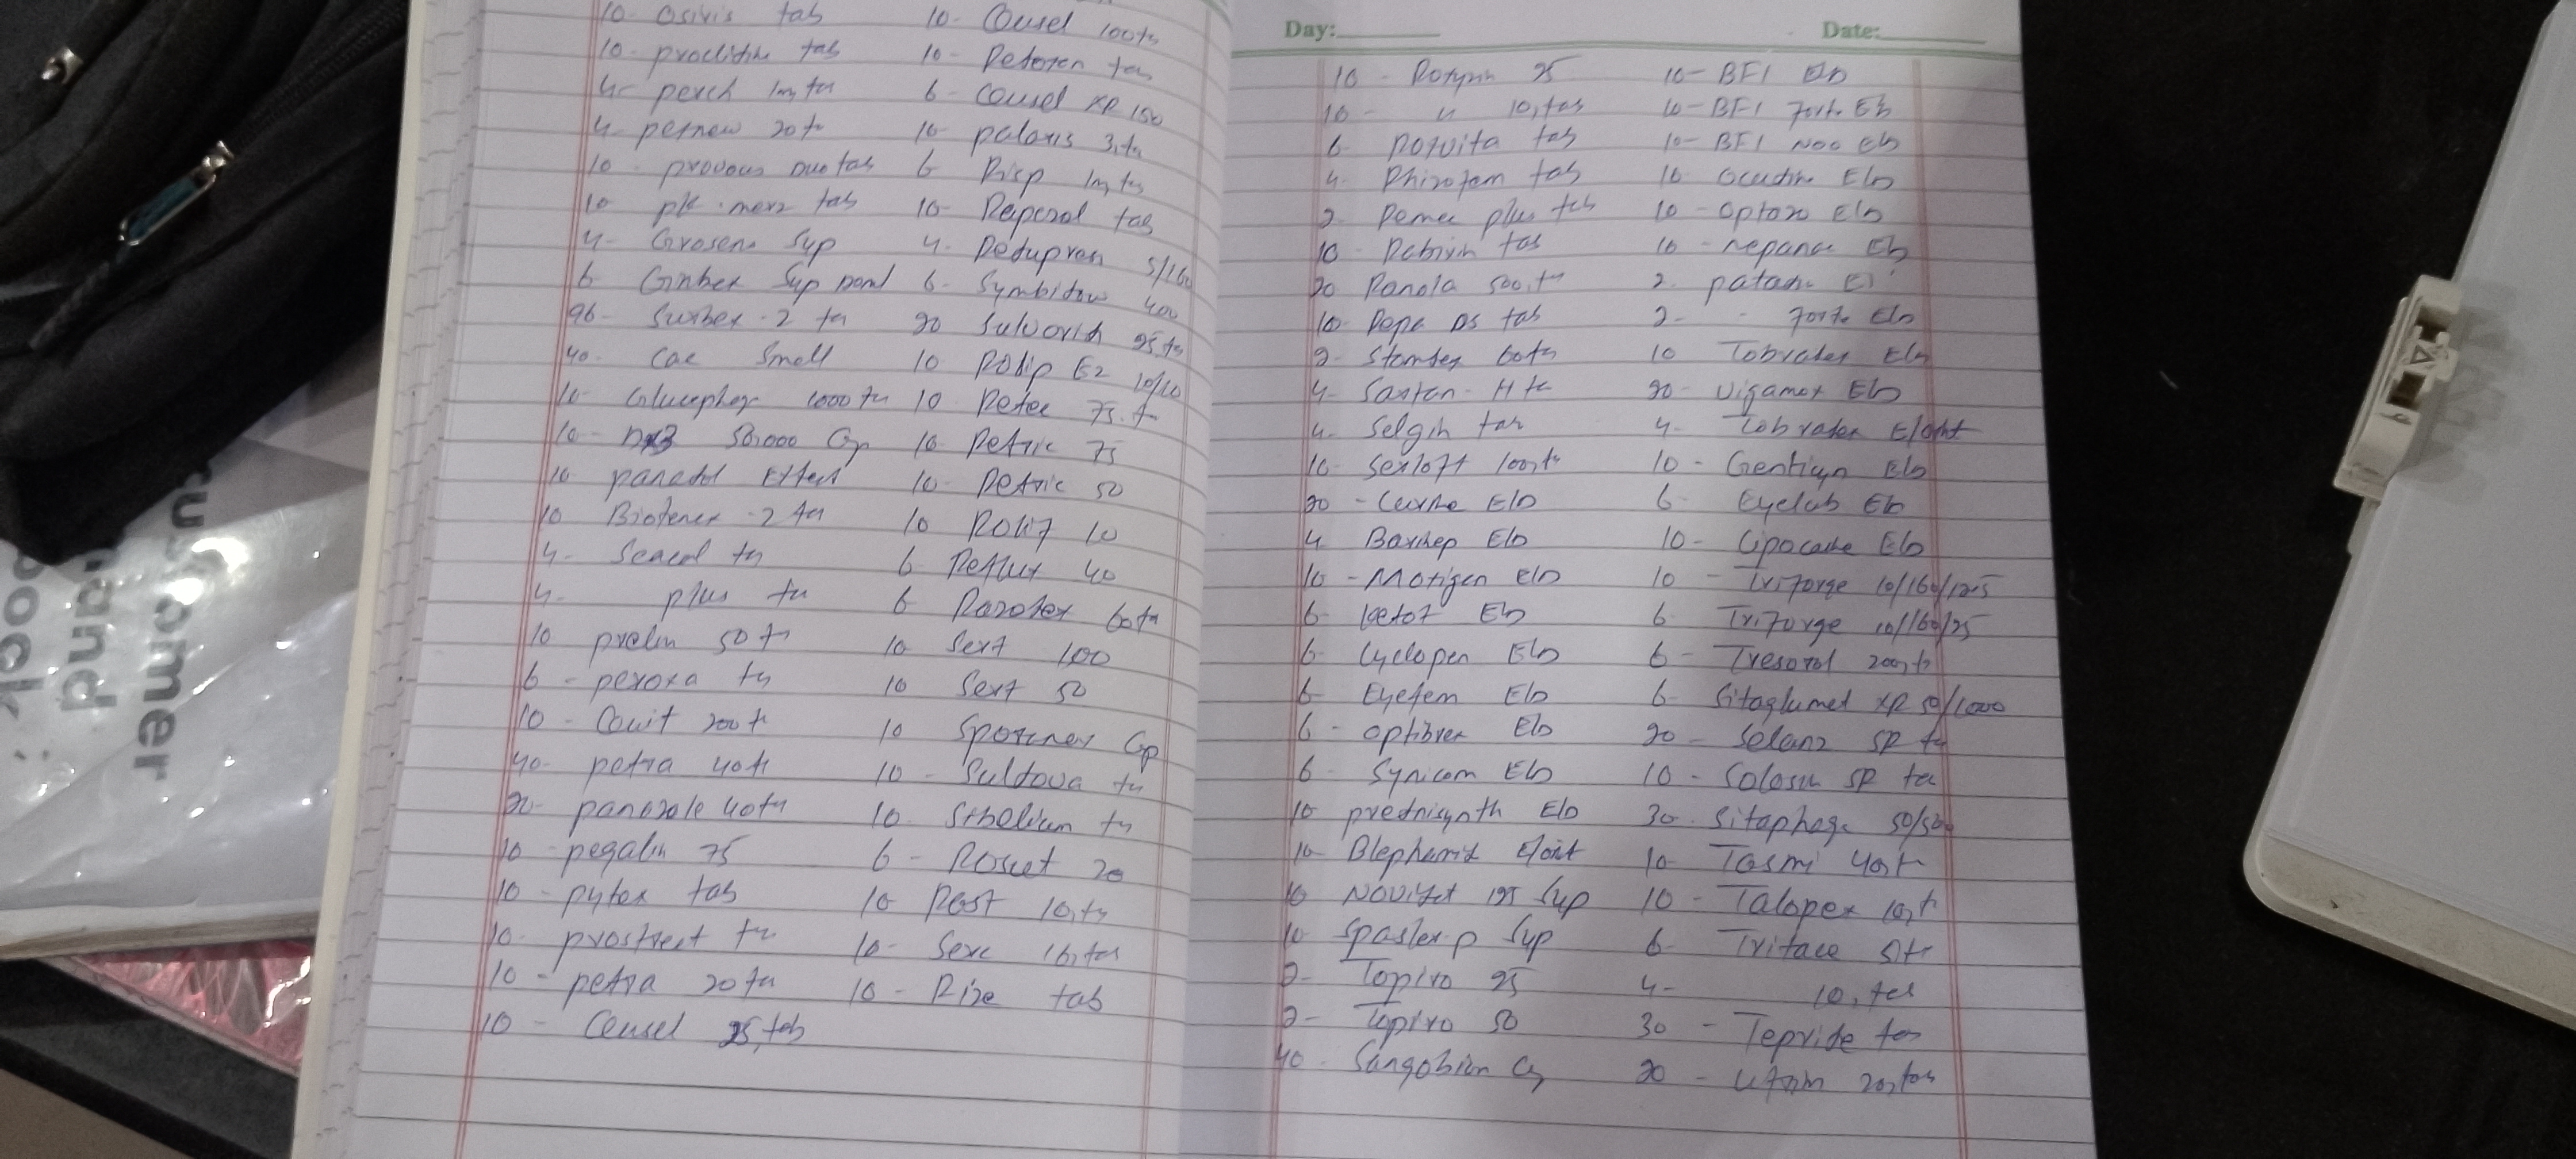 10- Osiris tab
10- proclidine tab
4- perch 1m, tn
4- petnew 20 tn
10- provous Duo tab
10 pk-merz tab
4- Grosens Syp
6 Ginbex Syp
96- Surbex-2 tn
40- Cac Small
10- Glucophage 1000 tn
10- D3 50,000 Cap
10 panadol Effect
10 Biotenex-2 tn
4- Seacal tn
4- plus tn
10 prelin 50 tn
6- pexoxa tn
10- Couit 200 t
40- petra 40 tn
20- panazole 40 tn
10- pegalin 75
10- pytex tab
10- prostreat tn
10- petra 20 tn
10- Ceusel 25, tab
10- Cousel 100 tn
10- Retoxen tab
6- Cousel XR 150
10- paloxis 3, tn
6 Risp 1m, tn
10- Reperal tab
4- Redupres 5/160
6- Symbidow 400
20 Sulvorid 25, tn
10 Rolip Ez 10/10
10 Retec 75, tn
10 Retric 75
10- Retric 50
10 Rolif 10
6 Reflux 40
6 Razotex 60 tn
10 Sert 100
10 Sert 50
10 Sporanex Cap
10- Suldova tn
10- Stbelium tn
6- Roscet 20
10 Rast 10, tn
10- Serc 16, tab
10- Rize tab
Day:
Date:
10- Rotypin 25
10- " 10, tab
6 Rotvita tab
4- Rhizotam tab
2- Remec plus tab
10- Rabixin tab
20 Ranola 500, tn
10- Repa DS tab
2- Stamtex 60 tn
4- Saxtan-H tn
4- Selgin tab
10- Serloft 100, tn
20- E/D
4 Baxidep E/D
10- Motigen E/D
6- Ketof E/D
6- Cyclopen E/D
6- Eyefem E/D
6- Optibrex E/D
6- Synicom E/D
10 prednisynth E/D
10- Blephamid E/oint
10 Novidat 125 Syp
10 Spasler-p Syp
2- Topiro 25
2- Topiro 50
40- Sangobion Cap
10- BFI E/D
10- BFI Forte E/D
10- BFI Neo E/D
10 Ocudine E/D
10- Optazo E/D
10- Nepanac E/D
2- patadin E/D
2- - Forte E/D
10 Tobradex E/D
20- Vigamox E/D
4- Tobradex E/oint
10- Genticyn E/D
6- Eyelub E/D
10- Lipocaine E/D
10- Triforge 10/160/12.5
6 Triforge 10/160/25
6- Tresoral 200, tn
6- Sitaglumet XR 50/1000
20- Solanz SR tn
10- Solosin SR tab
30- Sitophage 50/500
10- Tasmi 40, t
10- Talopex 10, t
6- Tritace 5, t
4- 10, tab
30- Tepride tab
20- 20, tab